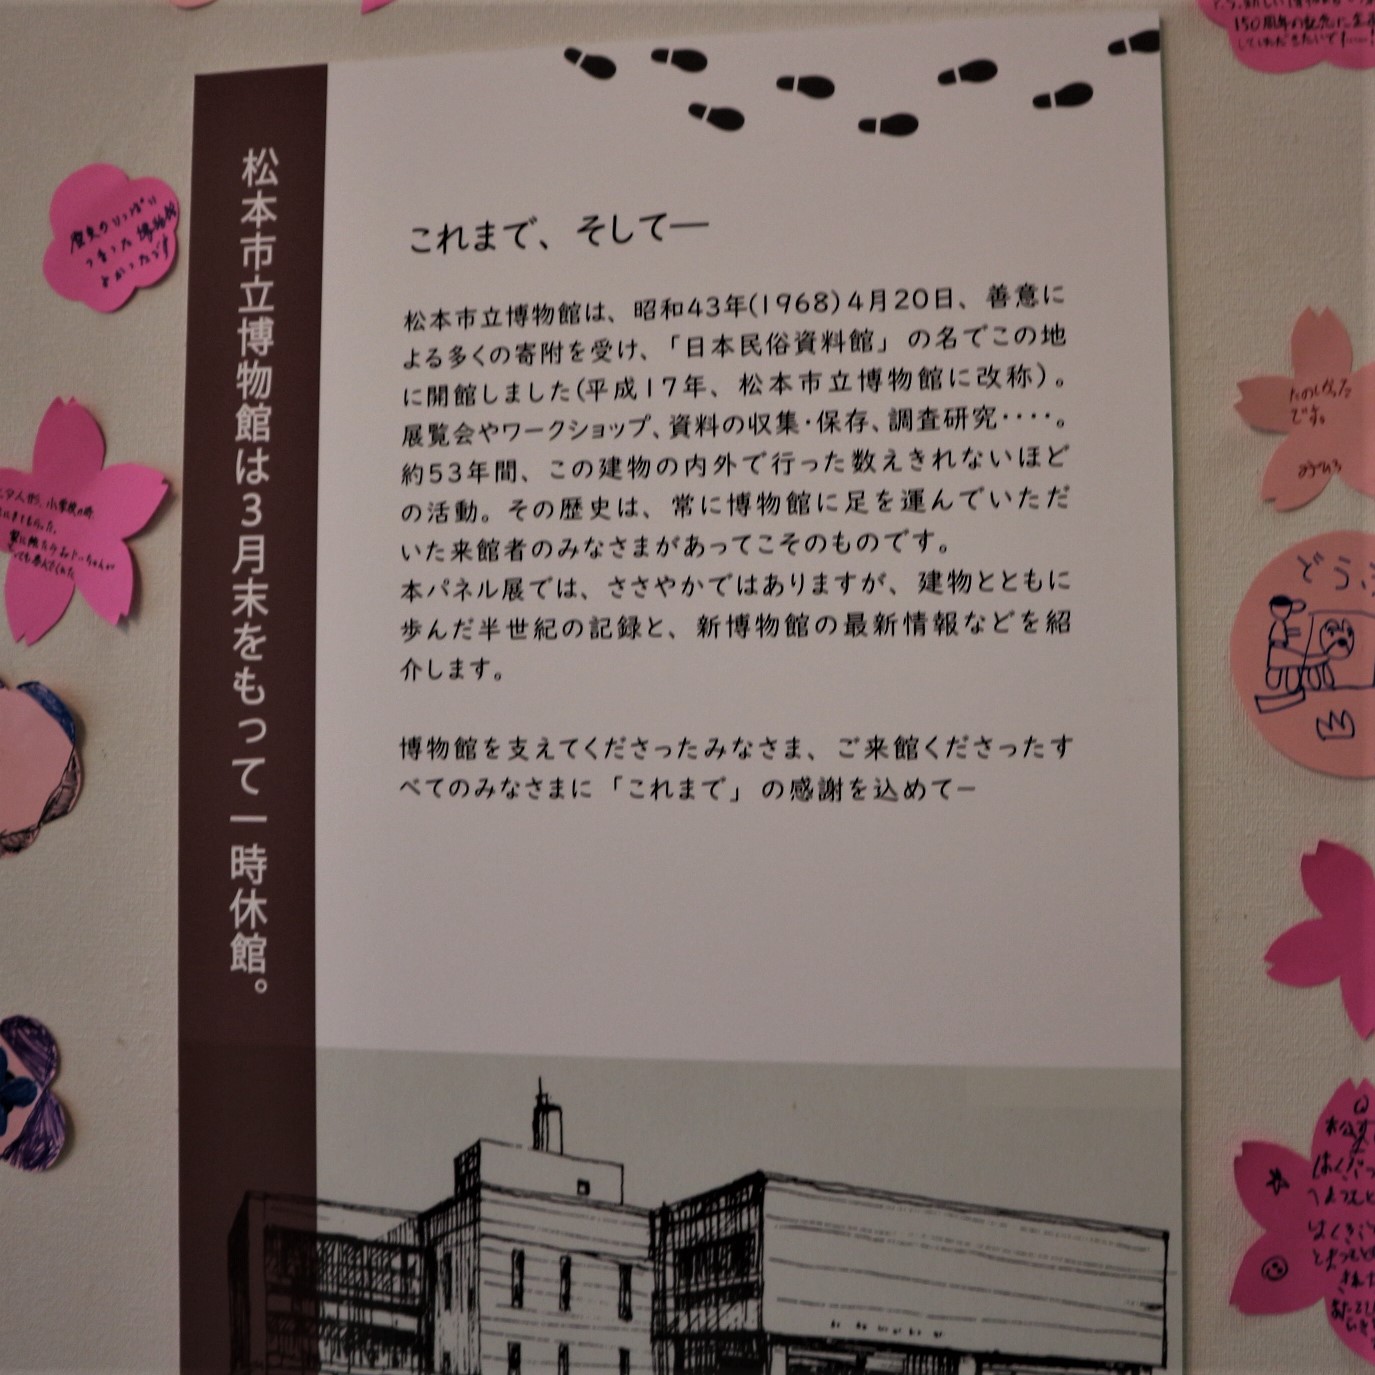 松本市立博物館は3月末をもって一時休館。
これまで、そして―
松本市立博物館は、昭和43年(1968)4月20日、善意に
よる多くの寄附を受け、「日本民俗資料館」の名でこの地
に開館しました(平成17年、松本市立博物館に改称)。
展覧会やワークショップ、資料の収集・保存、調査研究････。
約53年間、この建物の内外で行った数えきれないほど
の活動。その歴史は、常に博物館に足を運んでいただ
いた来館者のみなさまがあってこそのものです。
本パネル展では、ささやかではありますが、建物とともに
歩んだ半世紀の記録と、新博物館の最新情報などを紹
介します。
博物館を支えてくださったみなさま、ご来館くださったす
べてのみなさまに「これまで」の感謝を込めて−
歴史のいっぱい
つまった博物館
よかったです
150周年の記念に
たのしかった
です。
どうぶ